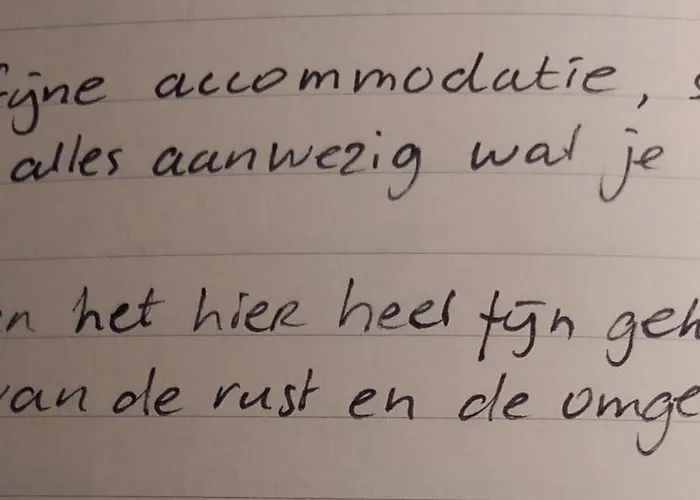 fijne accommodatie, s
alles aanwezig wat je
n het hier heel fijn geh
van de rust en de omge